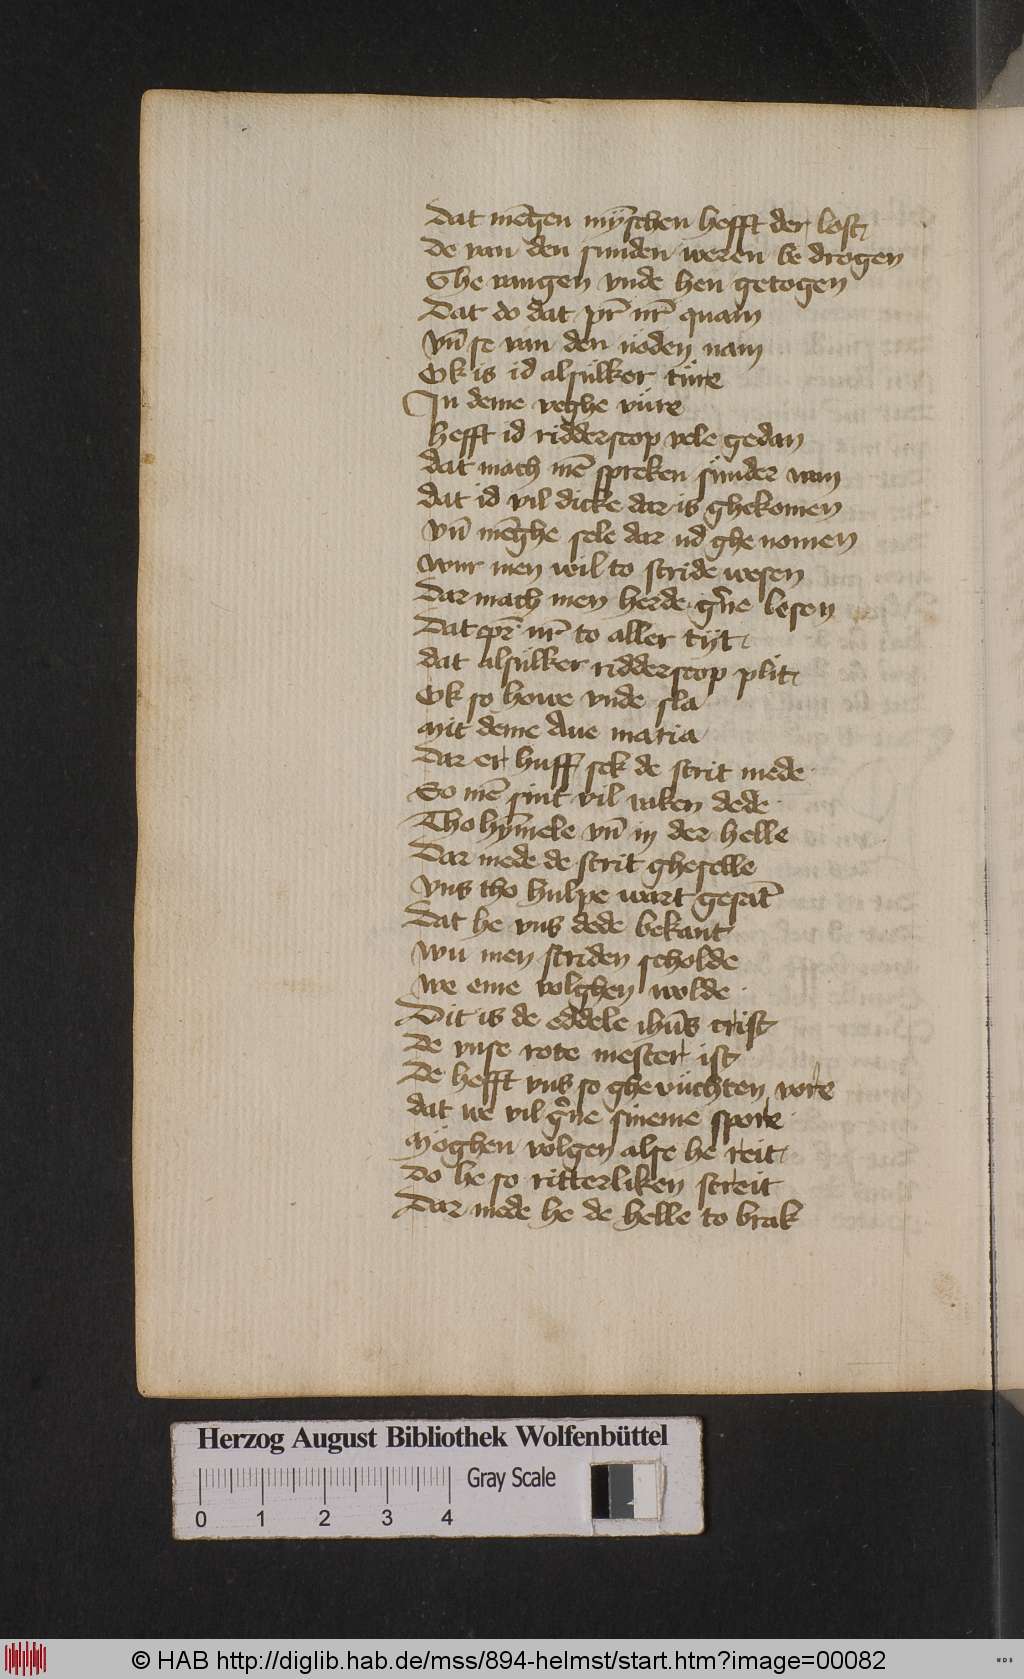 Dat mēgen mỹschen hefft der lost
De van den sunden weren be drogen
Ghe vangen vnde hen getogen
Dat do dat pr̄ nr̄ quam
Vn̄ se van den nöden nam
Ok is id alsulker türe
In deme veghe vüre
hefft id ridderscop vele gedan
dat mach mē spreken sunder wan
dat id vil dicke dar is ghekomen
Vn̄ mēghe sele dar ud ghe nomen
wur men wil to stride wesen
Dar mach men herde g̾ne lesen
Dat pr̄ nr̄ to aller tyt
dat alsulker ridderscop plit
Ok so howe vnde sla
Mit deme Aue maria
Dar er huff sek de strit mede
So mē sint vil vaken dede
Tho hȳmele vn̄ in der helle
Dar mede de strit gheselle
Vns tho hulpe wart gesāt
Dat he vns dede bekant
Wu men striden scholde
We eme volghen wolde
Dit is de eddele ihūs crist
De vnse rote mester ist
De hefft vns so ghe vüchten vore
dat we vil g̾ne sineme spore
Möghen volgen alse he reit
Do he so ritterliken streit
Dar mede he de helle to brak
Herzog August Bibliothek Wolfenbüttel
Gray Scale
0 1 2 3 4
© HAB http://diglib.hab.de/mss/894-helmst/start.htm?image=00082